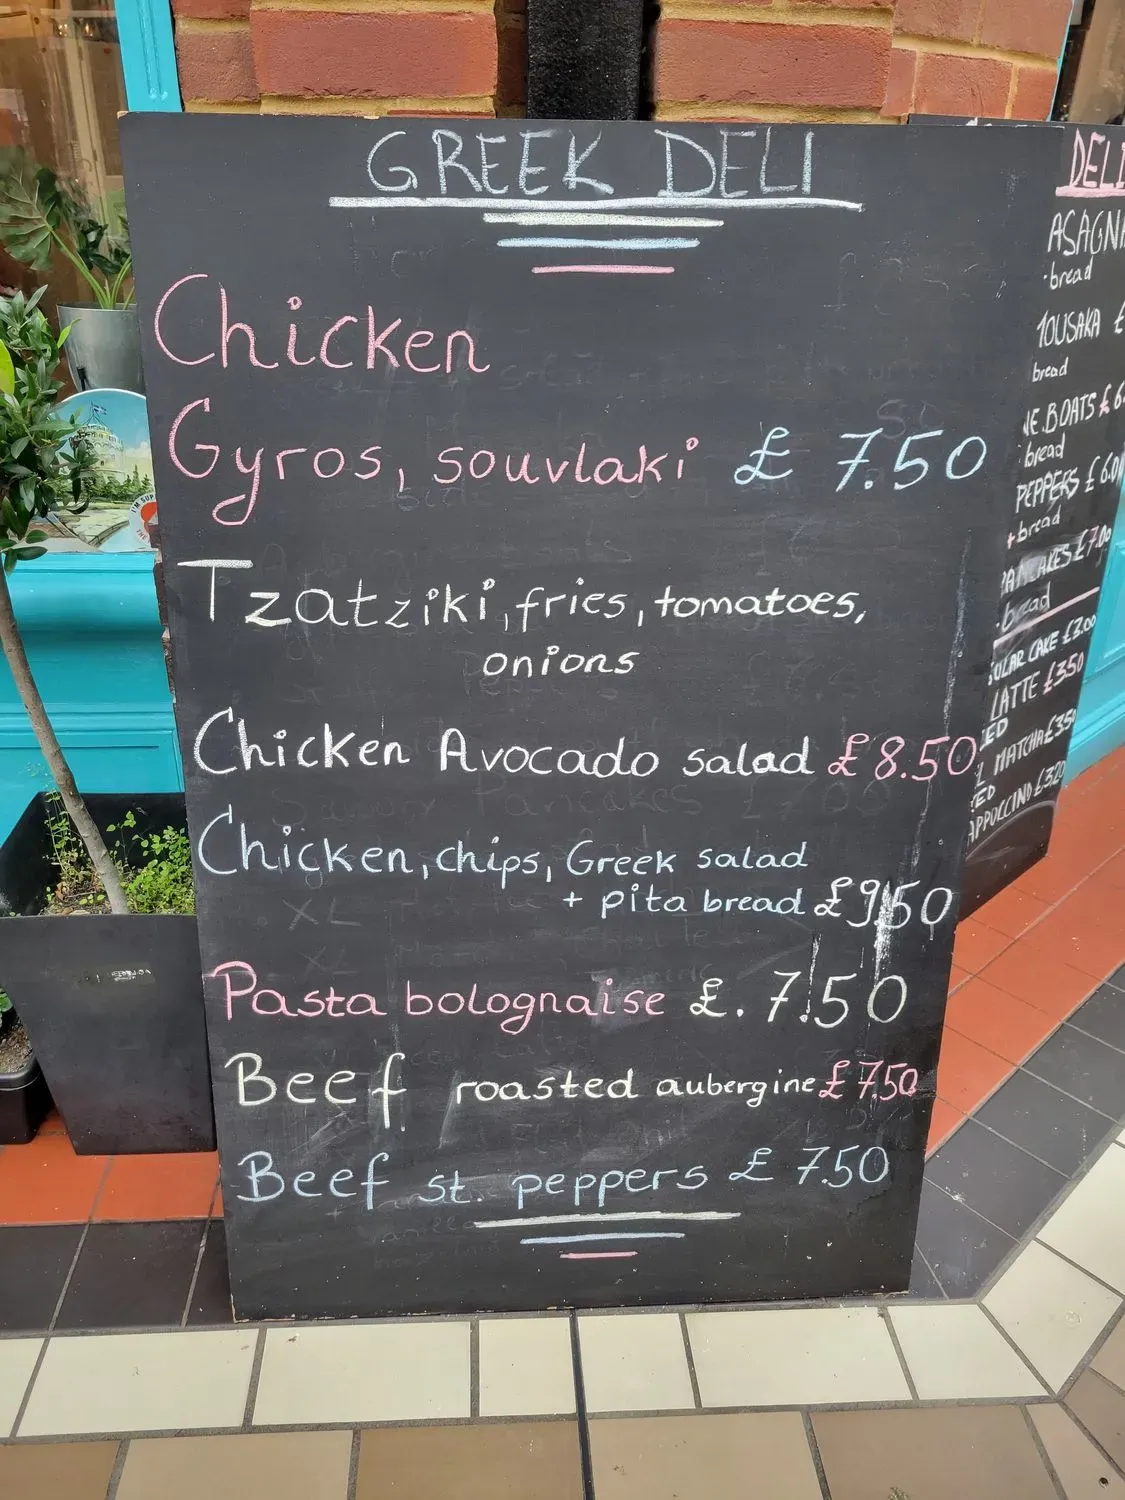 GREEK DELI
Chicken
Gyros, souvlaki £ 7.50
Tzatziki, fries, tomatoes,
onions
Chicken Avocado salad £8.50
Chicken, chips, Greek salad
+ pita bread £9.50
Pasta bolognaise £. 7.50
Beef roasted aubergine £ 7.50
Beef st. peppers £ 7.50
DELI
ASAGN
bread
OUSAKA £
bread
E. BOATS £ 6.
bread
PEPPERS £ 6.0
+ bread
ANCAKES £7.00
bread
ULAR CAKE £3.00
LATTE £3.50
ED
MATCHA £3.5
ED
APPUCCINO £3.20